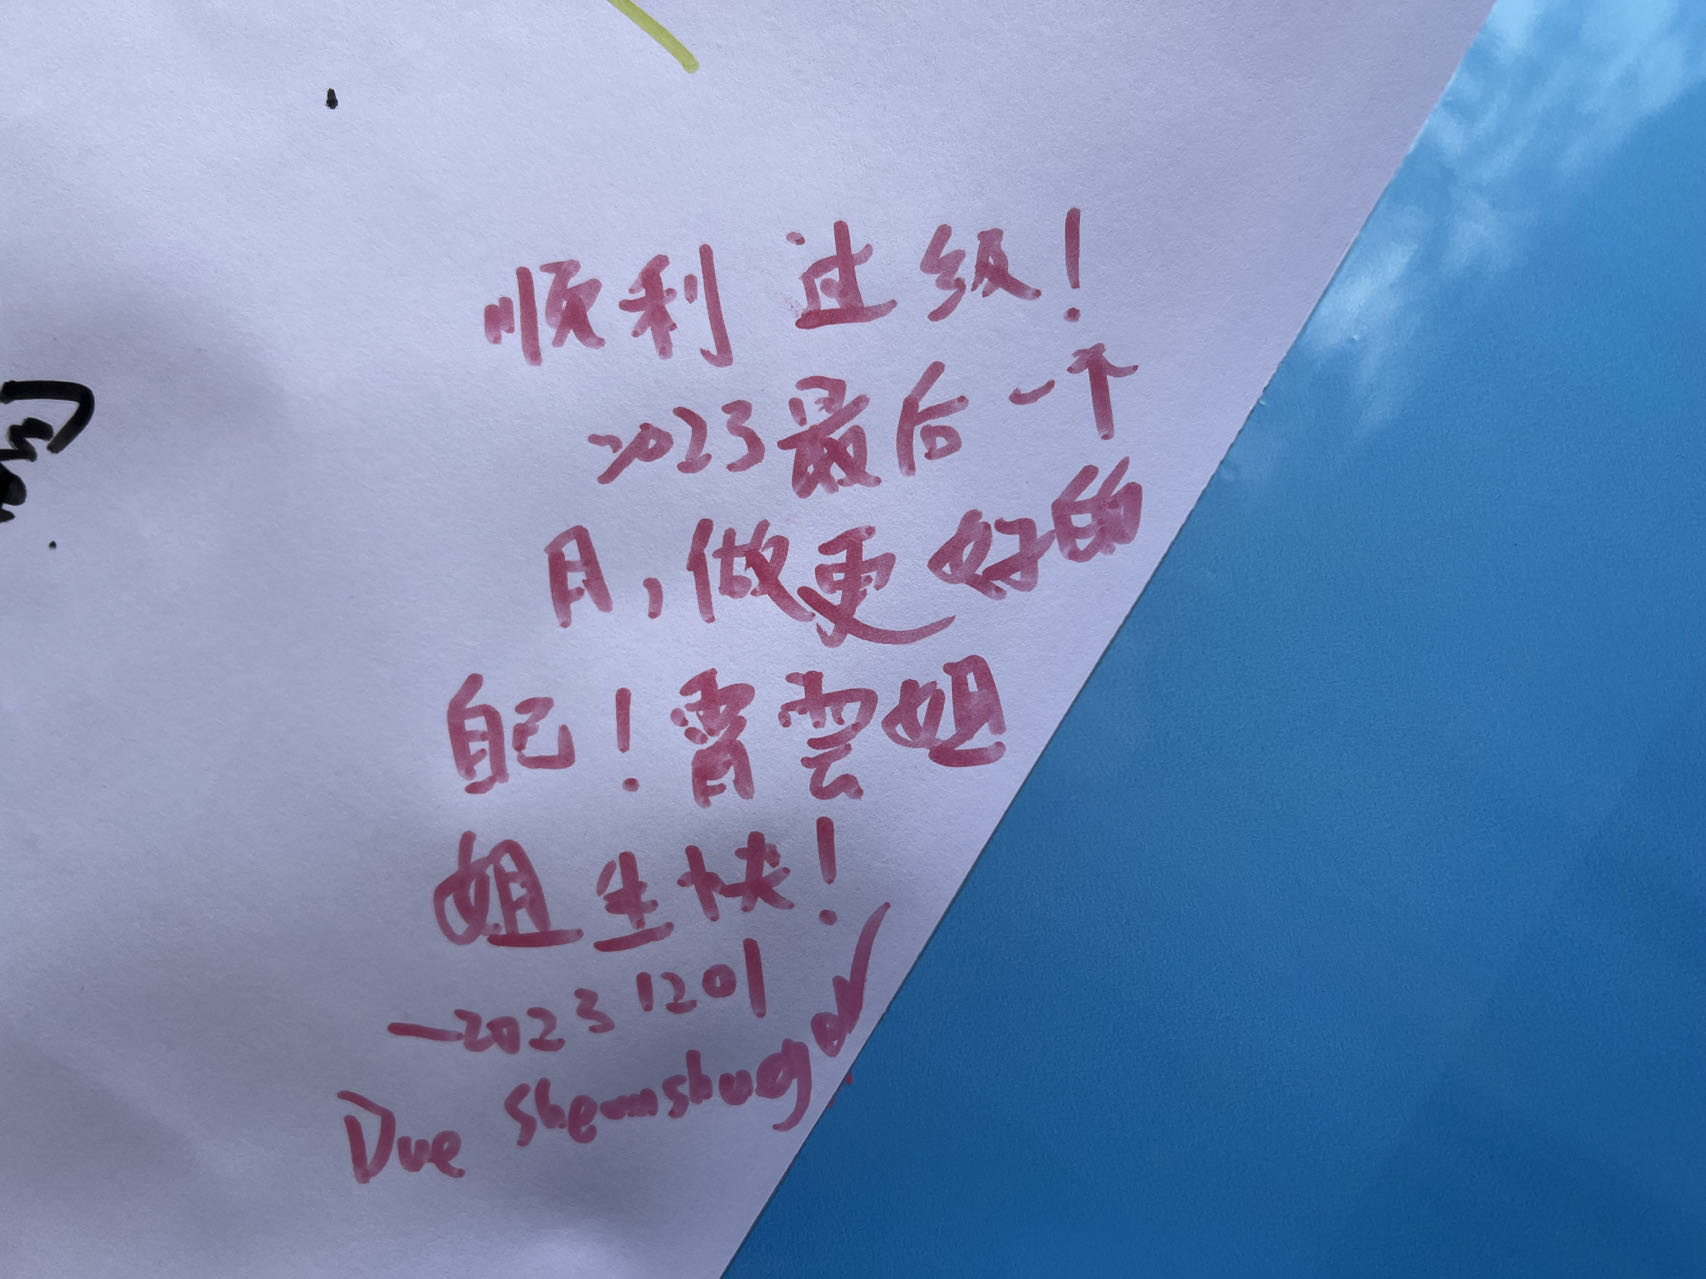 顺利过级！
2023最后一个
月，做更好的
自己！霄雲姐
姐生快！
—20231201
Due